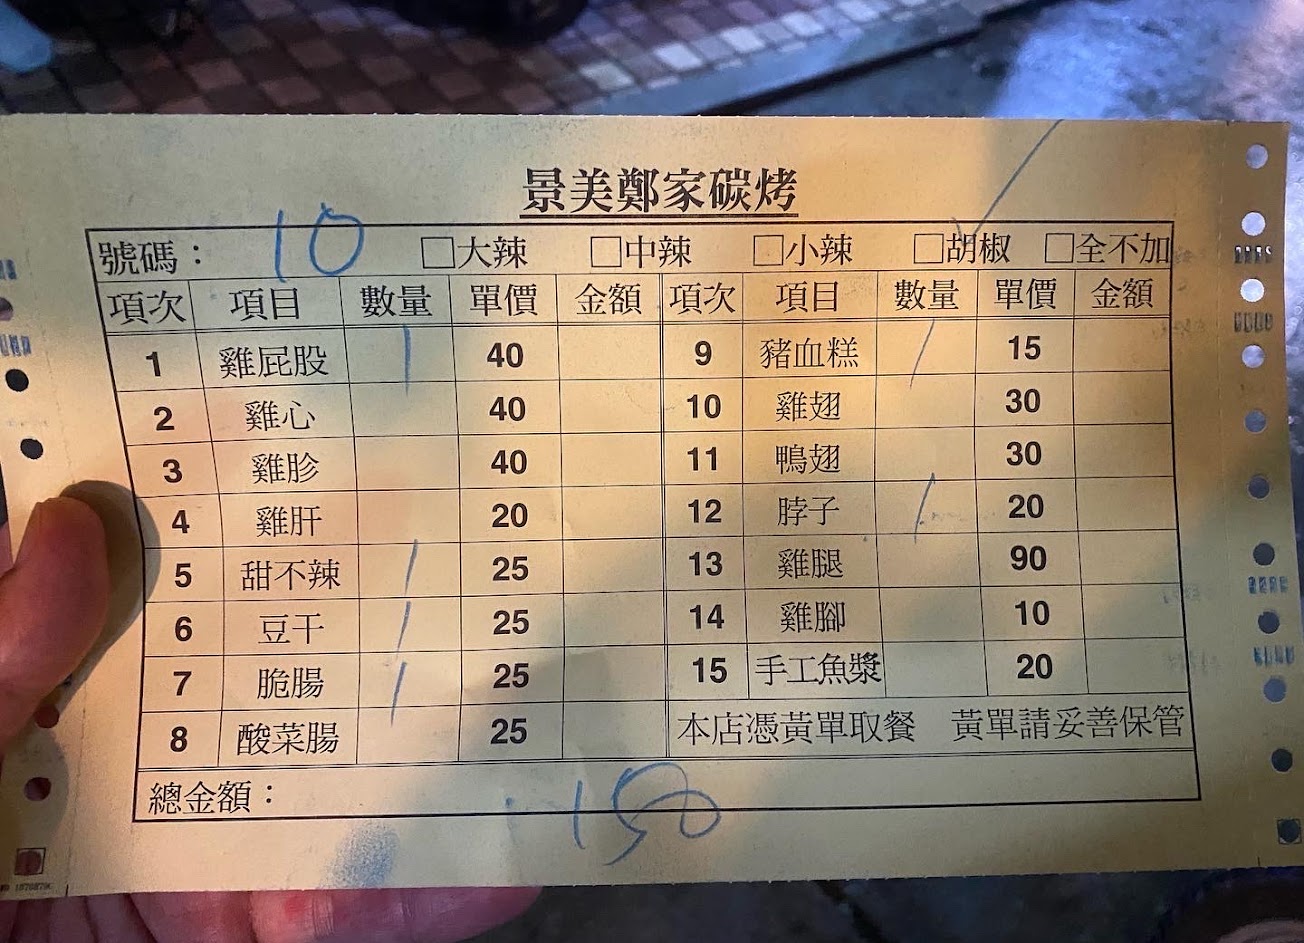 景美鄭家碳烤
號碼： 10 □大辣 □中辣 □小辣 □胡椒 □全不加
項次 項目 數量 單價 金額 項次 項目 數量 單價 金額
1 雞屁股 1 40 9 豬血糕 1 15
2 雞心 40 10 雞翅 30
3 雞胗 40 11 鴨翅 30
4 雞肝 20 12 脖子 1 20
5 甜不辣 1 25 13 雞腿 90
6 豆干 1 25 14 雞腳 10
7 脆腸 1 25 15 手工魚漿 20
8 酸菜腸 25 本店憑黃單取餐 黃單請妥善保管
總金額： 150